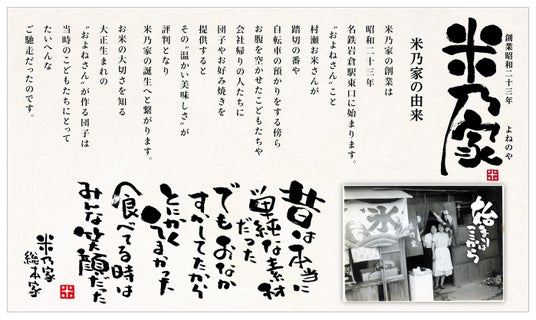 創業昭和二十三年　よねのや
米乃家
米乃家の由来
米乃家の創業は
昭和二十三年
名鉄岩倉駅東口に始まります。
"およねさん"こと
村瀬お米さんが
踏切の番や
自転車の預かりをする傍ら
お腹を空かせたこどもたちや
会社帰りの人たちに
団子やお好み焼きを
提供すると
その"温かい美味しさ"が
評判となり
米乃家の誕生へと繋がります。
お米の大切さを知る
大正生まれの
"およねさん"が作る団子は
当時のこどもたちにとって
たいへんな
ご馳走だったのです。
始まりはここから
氷
昔は本当に
単純な素材
だった
でもおなか
すかしてたから
とにかく
うまかった
食べてる時は
みんな笑顔だった
米乃家
総本家
米